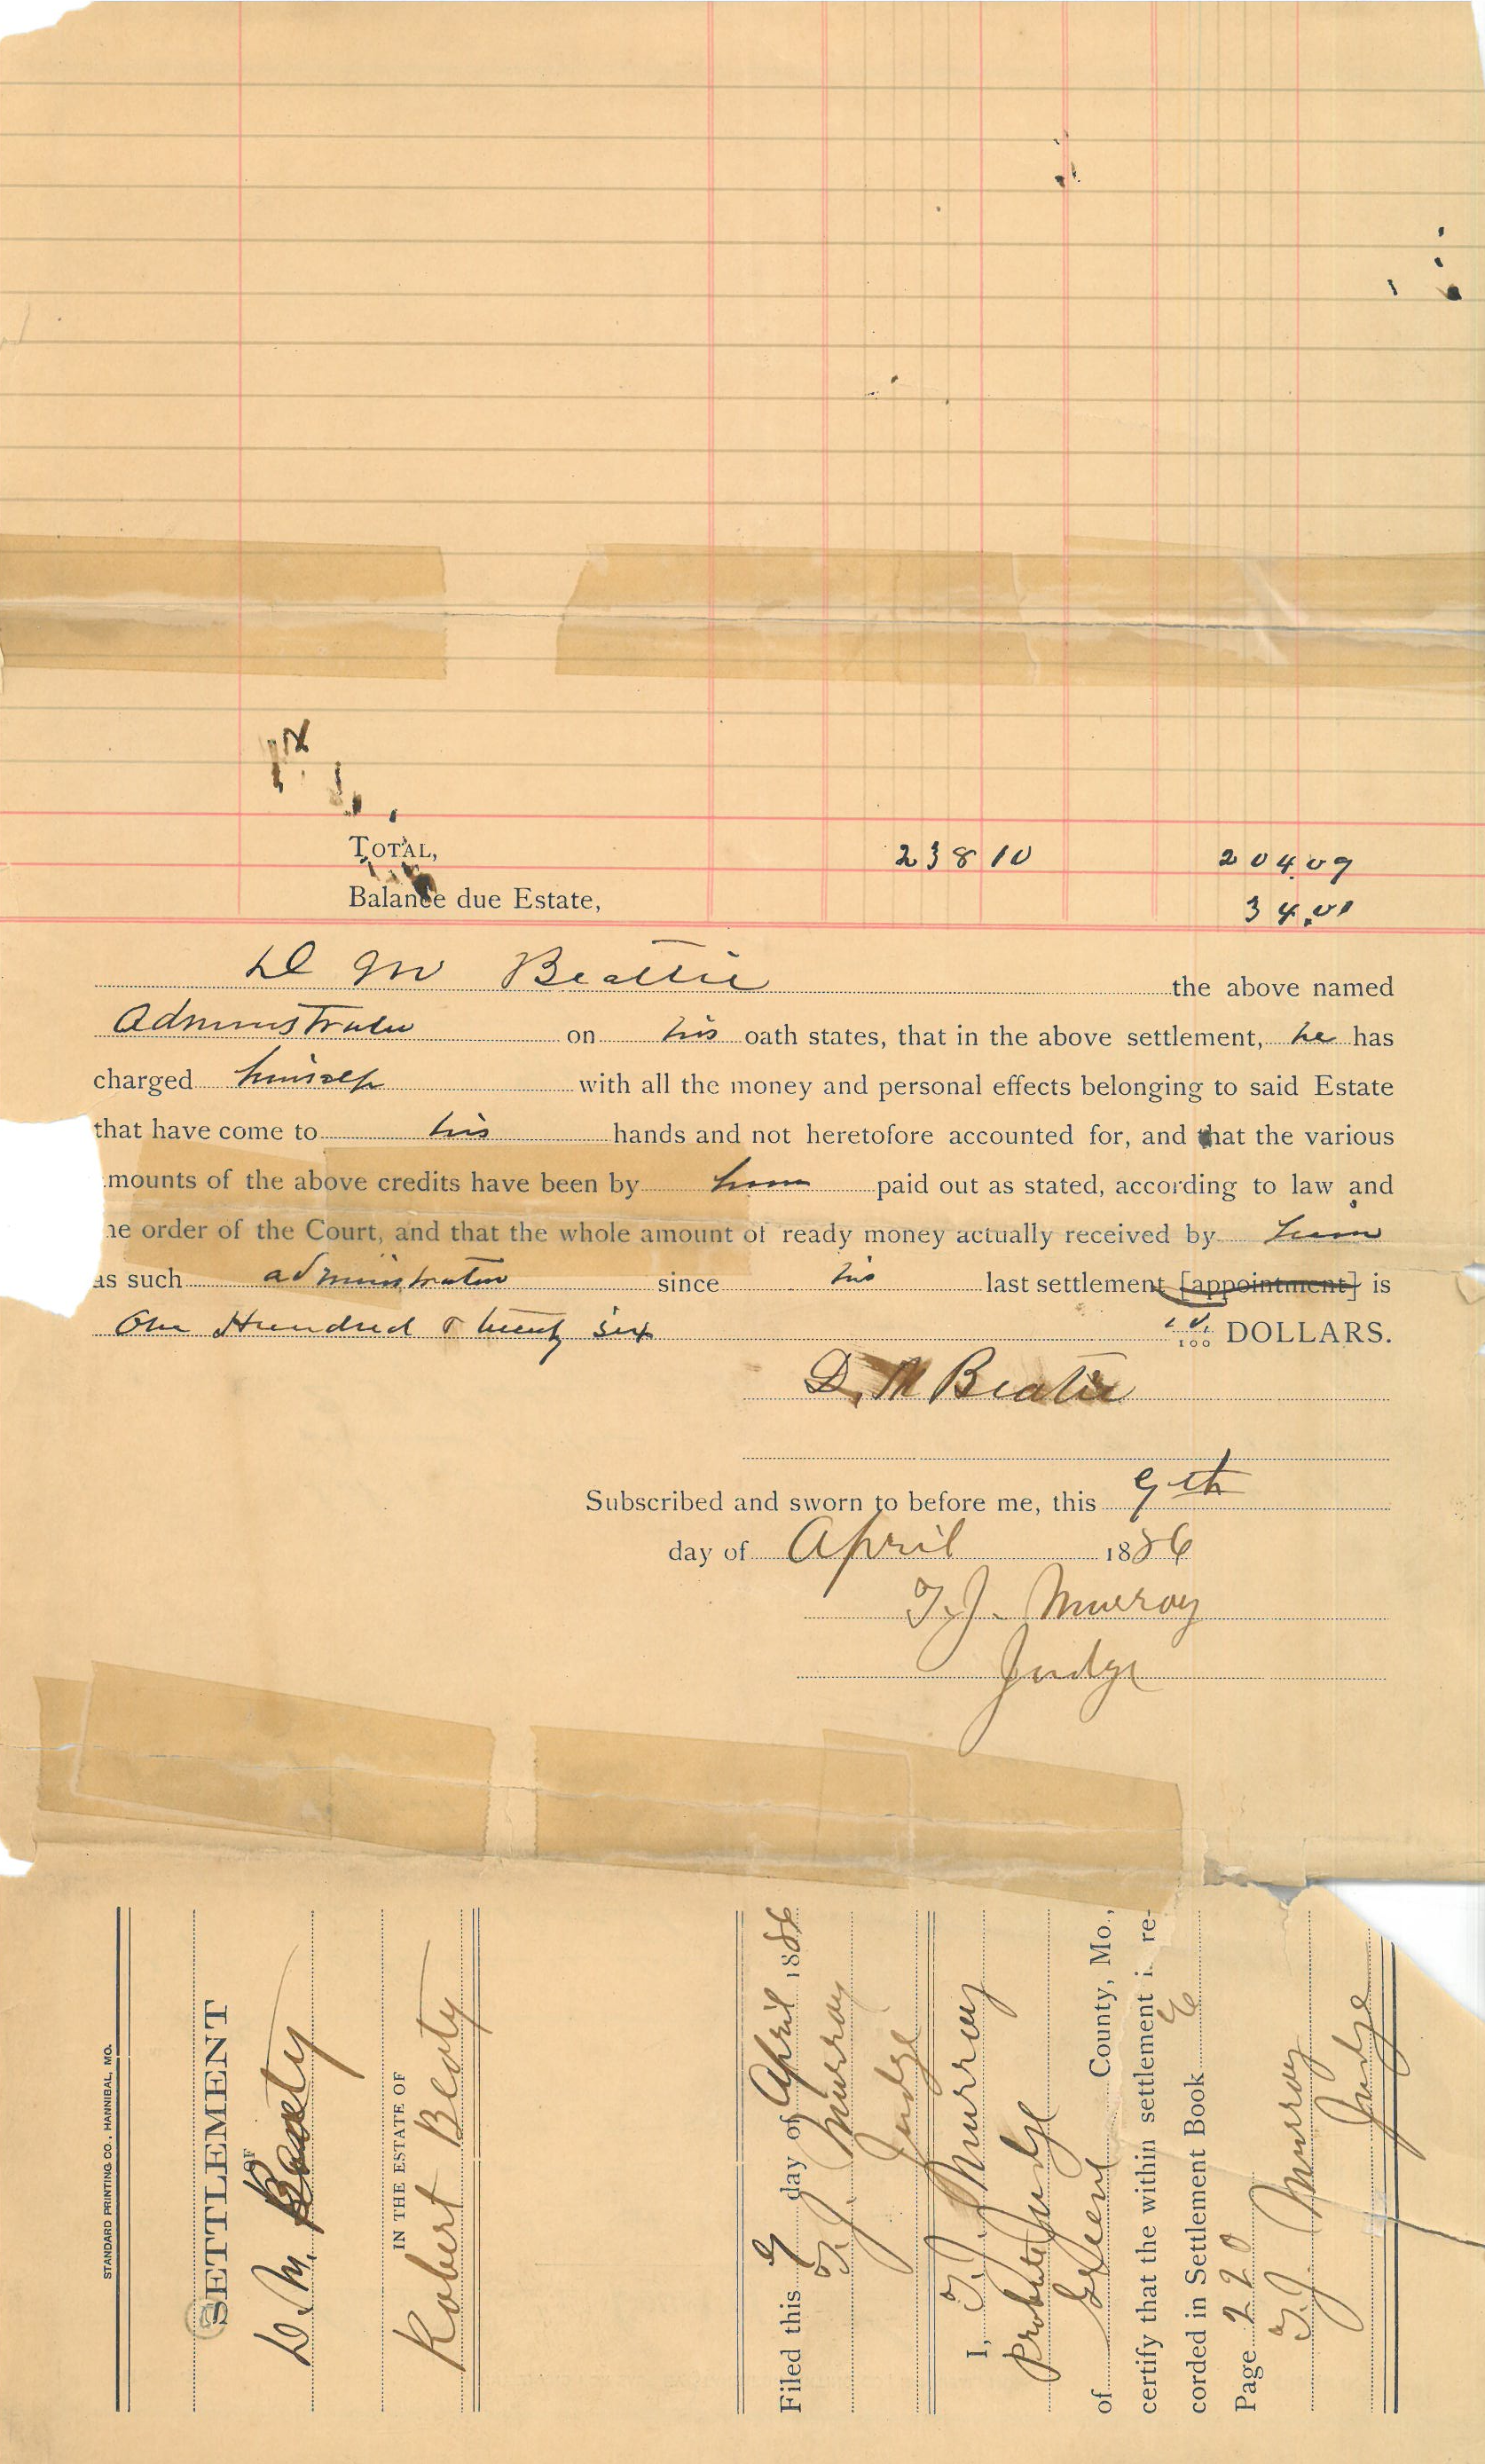 TOTAL, 238 10 204.09
Balance due Estate, 34.01
D M Beattie the above named
Administrator on his oath states, that in the above settlement, he has
charged himself with all the money and personal effects belonging to said Estate
that have come to his hands and not heretofore accounted for, and that the various
mounts of the above credits have been by him paid out as stated, according to law and
he order of the Court, and that the whole amount of ready money actually received by him
as such administrator since his last settlement [appointment] is
One Hundred & twenty six 10/100 DOLLARS.
D. M Beatie
Subscribed and sworn to before me, this 9th
day of April 1886
T. J. Murray
Judge
STANDARD PRINTING CO., HANNIBAL, MO.
SETTLEMENT
OF
D. M. Beaty
IN THE ESTATE OF
Robert Beaty
Filed this 9 day of April 1886
T. J. Murray
Judge
I, T. J. Murray
Probate Judge
of Greene County, Mo.,
certify that the within settlement i re-
corded in Settlement Book
Page 220
T. J. Murray
Judge